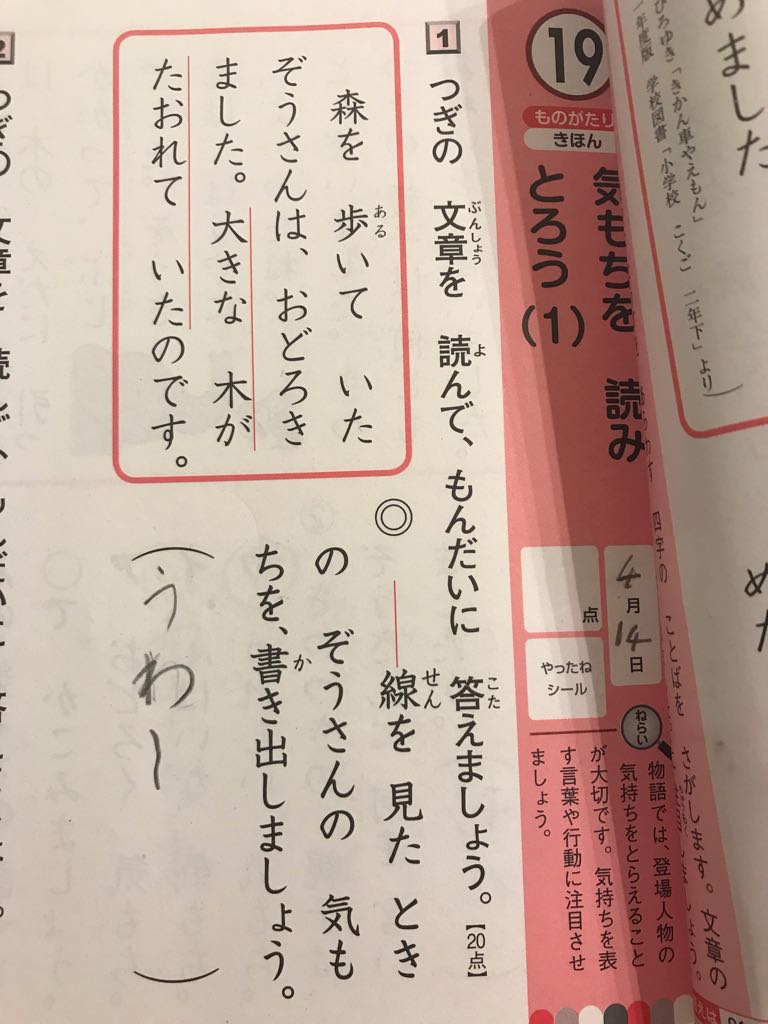 めました
ひろゆき「きかん車やえもん」
年度版 学校図書「小学校 こくご 二年下」より)
19
ものがたり
きほん
気もちを 読み
とろう(1)
四字の ことばを さがします。文章の
4月14日
点
やったね
シール
ねらい
物語では、登場人物の
気持ちをとらえること
が大切です。気持ちを表
す言葉や行動に注目させ
ましょう。
1 つぎの 文章を 読んで、もんだいに 答えましょう。【20点】
ぶんしょう
よ
こた
森を 歩いて いた
ある
ぞうさんは、おどろき
ました。大きな 木が
たおれて いたのです。
◎ 線を 見た とき
せん
の ぞうさんの 気も
ちを、書き出しましょう。
か
(うわー)
2